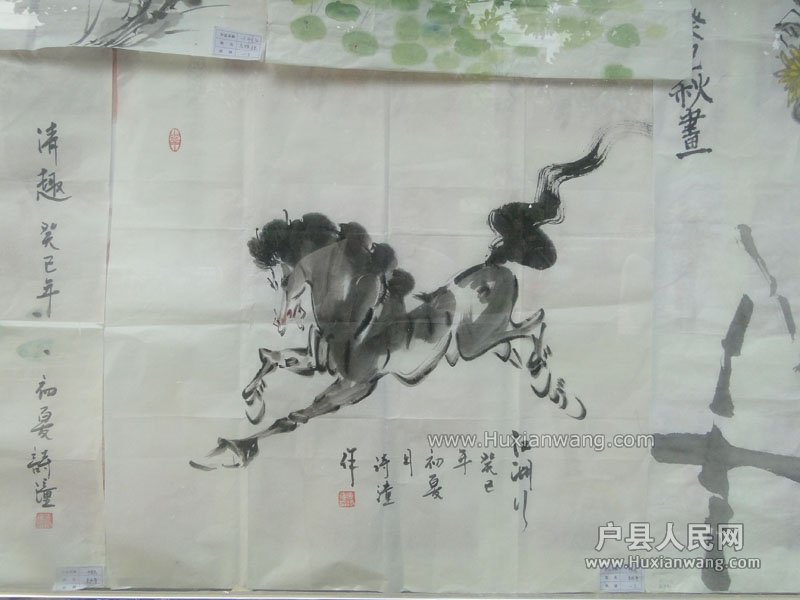 清趣 癸巳年
初夏 诗潼
癸巳秋畫
江湖行
癸巳
年
初夏
月
诗潼
作
www.Huxianwang.com
户县人民网
Huxianwang.com